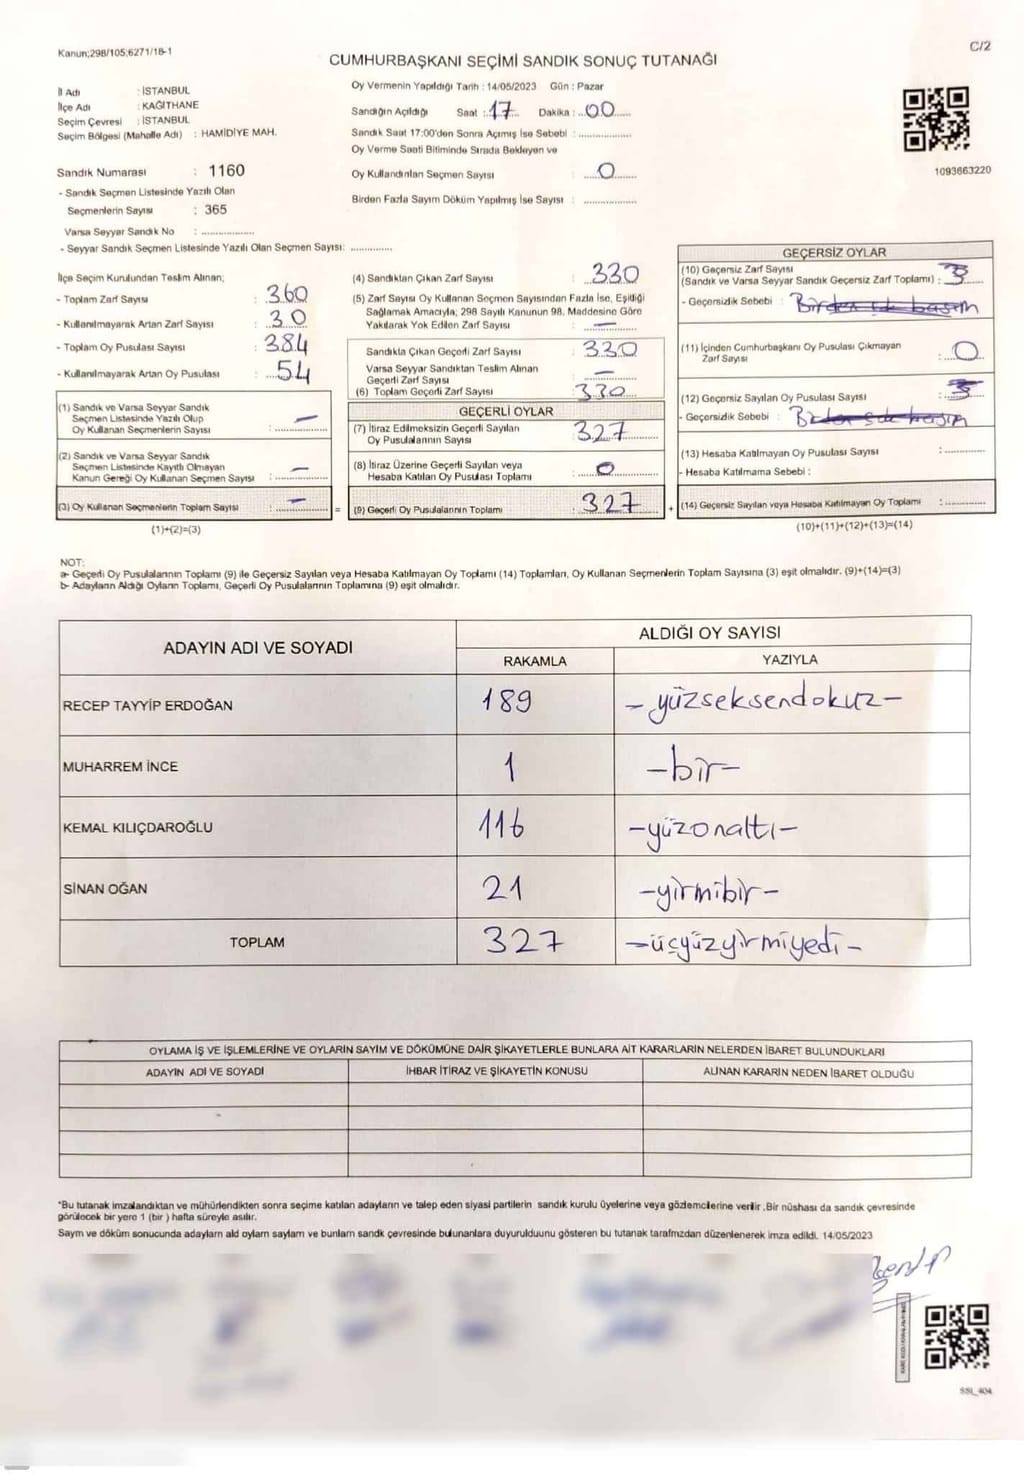 Kanun;298/105;6271/18-1
C/2
CUMHURBAŞKANI SEÇİMİ SANDIK SONUÇ TUTANAĞI
İl Adı : İSTANBUL
İlçe Adı : KAĞITHANE
Seçim Çevresi : İSTANBUL
Seçim Bölgesi (Mahalle Adı) : HAMİDİYE MAH.
Sandık Numarası : 1160
- Sandık Seçmen Listesinde Yazılı Olan
Seçmenlerin Sayısı : 365
Varsa Seyyar Sandık No : ...............
- Seyyar Sandık Seçmen Listesinde Yazılı Olan Seçmen Sayısı: ............
Oy Vermenin Yapıldığı Tarih : 14/05/2023 Gün : Pazar
Sandığın Açıldığı Saat : 17 Dakika : 00
Sandık Saat 17:00'den Sonra Açımış İse Sebebi : ...............
Oy Verme Saati Bitiminde Sırada Bekleyen ve
Oy Kullandırılan Seçmen Sayısı : 0
Birden Fazla Sayım Döküm Yapılmış İse Sayısı : ...............
1093663220
İlçe Seçim Kurulundan Teslim Alınan;
- Toplam Zarf Sayısı : 360
- Kullanılmayarak Artan Zarf Sayısı : 30
- Toplam Oy Pusulası Sayısı : 384
- Kullanılmayarak Artan Oy Pusulası : 54
(1) Sandık ve Varsa Seyyar Sandık
Seçmen Listesinde Yazılı Olup
Oy Kullanan Seçmenlerin Sayısı : —
(2) Sandık ve Varsa Seyyar Sandık
Seçmen Listesinde Kayıtlı Olmayan
Kanun Gereği Oy Kullanan Seçmen Sayısı : —
(3) Oy Kullanan Seçmenlerin Toplam Sayısı : — =
(1)+(2)=(3)
(4) Sandıktan Çıkan Zarf Sayısı : 330
(5) Zarf Sayısı Oy Kullanan Seçmen Sayısından Fazla İse, Eşitliği
Sağlamak Amacıyla; 298 Sayılı Kanunun 98. Maddesine Göre
Yakılarak Yok Edilen Zarf Sayısı : —
Sandıkta Çıkan Geçerli Zarf Sayısı : 330
Varsa Seyyar Sandıktan Teslim Alınan
Geçerli Zarf Sayısı : —
(6) Toplam Geçerli Zarf Sayısı : 330
GEÇERLİ OYLAR
(7) İtiraz Edilmeksizin Geçerli Sayılan
Oy Pusulalarının Sayısı : 327
(8) İtiraz Üzerine Geçerli Sayılan veya
Hesaba Katılan Oy Pusulası Toplamı : 0
(9) Geçerli Oy Pusulalarının Toplamı : 327 +
GEÇERSİZ OYLAR
(10) Geçersiz Zarf Sayısı
(Sandık ve Varsa Seyyar Sandık Geçersiz Zarf Toplamı) : 3
- Geçersizlik Sebebi :
(11) İçinden Cumhurbaşkanı Oy Pusulası Çıkmayan
Zarf Sayısı : 0
(12) Geçersiz Sayılan Oy Pusulası Sayısı : 3
- Geçersizlik Sebebi :
(13) Hesaba Katılmayan Oy Pusulası Sayısı : ............
- Hesaba Katılmama Sebebi :
(14) Geçersiz Sayılan veya Hesaba Katılmayan Oy Toplamı : ............
(10)+(11)+(12)+(13)=(14)
NOT:
a- Geçerli Oy Pusulalarının Toplamı (9) ile Geçersiz Sayılan veya Hesaba Katılmayan Oy Toplamı (14) Toplamları, Oy Kullanan Seçmenlerin Toplam Sayısına (3) eşit olmalıdır. (9)+(14)=(3)
b- Adayların Aldığı Oyların Toplamı, Geçerli Oy Pusulalarının Toplamına (9) eşit olmalıdır.
ADAYIN ADI VE SOYADI
ALDIĞI OY SAYISI
RAKAMLA YAZIYLA
RECEP TAYYİP ERDOĞAN 189 -yüzseksendokuz-
MUHARREM İNCE 1 -bir-
KEMAL KILIÇDAROĞLU 116 -yüzonaltı-
SİNAN OĞAN 21 -yirmibir-
TOPLAM 327 -üçyüzyirmiyedi-
OYLAMA İŞ VE İŞLEMLERİNE VE OYLARIN SAYIM VE DÖKÜMÜNE DAİR ŞİKAYETLERLE BUNLARA AİT KARARLARIN NELERDEN İBARET BULUNDUKLARI
ADAYIN ADI VE SOYADI İHBAR İTİRAZ VE ŞİKAYETİN KONUSU ALINAN KARARIN NEDEN İBARET OLDUĞU
*Bu tutanak imzalandıktan ve mühürlendikten sonra seçime katılan adayların ve talep eden siyasi partilerin sandık kurulu üyelerine veya gözlemcilerine verilir .Bir nüshası da sandık çevresinde
görülecek bir yere 1 (bir ) hafta süreyle asılır.
Sayım ve döküm sonucunda adayların ald oyların sayları ve bunların sandk çevresinde bulunanlara duyurulduunu gösteren bu tutanak tarafmzdan düzenlenerek imza edildi. 14/05/2023
SSL_404